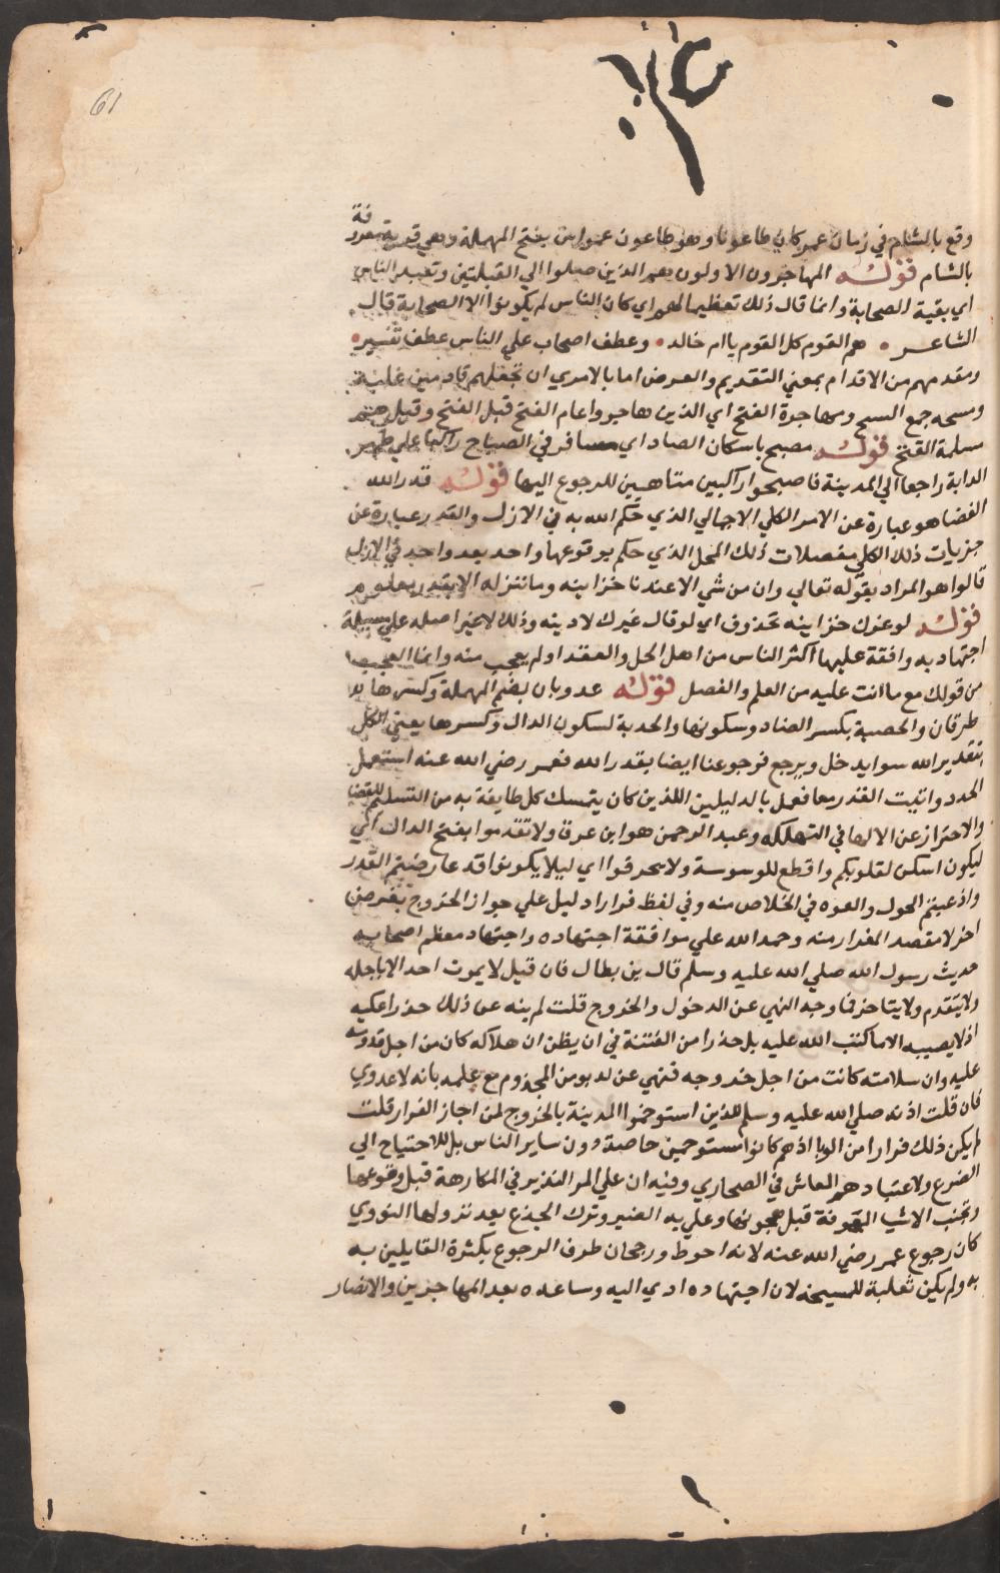 61
وقع بالشام في زمان عمر كان طاعونا وهو طاعون عمواس بفتح المهملة وهي قرية معروفة
بالشام قوله المهاجرون الاولون هم الذين صلوا الي القبلتين وتعبير الناس
اي بقية الصحابة وانما قال ذلك تعظيما لهم اي كان الناس لم يكونوا الا الصحابة قال
الشاعر هم القوم كل القوم يا ام خالد وعطف اصحاب علي الناس عطف تفسير
ومقدمهم من الاقدام بمعني التقديم والعرض اما بالامري ان تجعلهم قادمين عليه
ومسحه جمع السيح ومهاجرة الفتح اي الذين هاجروا عام الفتح قبل الفتح وقيل هم
مسلمة الفتح قوله مصبح باسكان الصاد اي مسافر في الصباح راكبا علي ظهر
الدابة راجعا الي المدينة فاصبحوا راكبين متاهبين للرجوع اليها قوله قدر الله
القضا هو عبارة عن الامر الكلي الاجمالي الذي حكم الله به في الازل والقدر عبارة عن
جزيات ذلك الكلي مفصلات ذلك المجمل الذي حكم بوقوعها واحد بعد واحد في الازل
قالوا هو المراد بقوله تعالي وان من شي الا عندنا خزاينه وما ننزله الا بقدر معلوم
قوله لو غيرك جزاينه محذوف اي لو قال غيرك لادبته وذلك لاعتراضه علي مسيلة
اجتهاديه وافقه عليها اكثر الناس من اهل الحل والعقد او لم يعجب منه وانما العجب
من قولك مع ما انت عليه من العلم والفضل قوله عدوتان بضم المهملة وكسرها
طرفان والخصبة بكسر الصاد وسكونها والجدبة لسكون الدال وكسرها يعني الكل
بتقدير الله سوا يدخل ويرجع فرجوعنا ايضا بقدر الله فعمر رضي الله عنه استعمل
الحدد واثبت القدر معا فعمل بالدليلين اللذين كان يتمسك كل طايفة به من التسليم للقضا
والاحتراز عن الالقا في التهلكه وعبد الرحمن هو ابن عوف ولا تقدموا بفتح الدال
ليكون اسكن لقلوبكم واقطع للوسوسة ولا تخرجوا اي ليلا يكونوا قد عارضتم القدر
وادعيتم الحول والقوه في الخلاص منه وفي لفظ فرارا دليل علي جواز الخروج بغرض
اخر لا بقصد الفرار منه وحمد الله علي موافقة اجتهاده واجتهاد معظم اصحابه
حديث رسول الله صلي الله عليه وسلم قال بن بطال فان قيل لا يموت احد الا باجله
ولا يتقدم ولا يتاخر فما وجه النهي عن الدخول والخروج قلت لم ينه عن ذلك حذرا عليه
اذ لا يصيبه الا ما كتب الله عليه بل حذرا من الفتنة في ان يظن ان هلاكه كان من اجل قدومه
عليه وان سلامته كانت من اجل خروجه فنهي عن لدنو من المجذوم مع علمه بانه لا عدوي
فان قلت اذنه صلي الله عليه وسلم للذين استوخموا المدينة بالخروج لمن اجاز الفرار قلت
لم يكن ذلك فرارا من الوبا اذ هم كانوا مستوخمين خاصة دون ساير الناس بل للاحتياج الي
الضرع ولاعتيادهم المعاش في الصحاري وفيه ان علي المر التدبر في المكارهة قبل وقوعها
وتجنب الاشيا المخوفة قبل هجومها وعليه الصبر وترك الجزع بعد نزولها النووي
كان رجوع عمر رضي الله عنه لانه احوط ورجحان طرف الرجوع بكثرة القايلين به
به ولم يكن تغلبة للمسيخة لان اجتهاده ادي اليه وساعده بعد المهاجرين والانصار